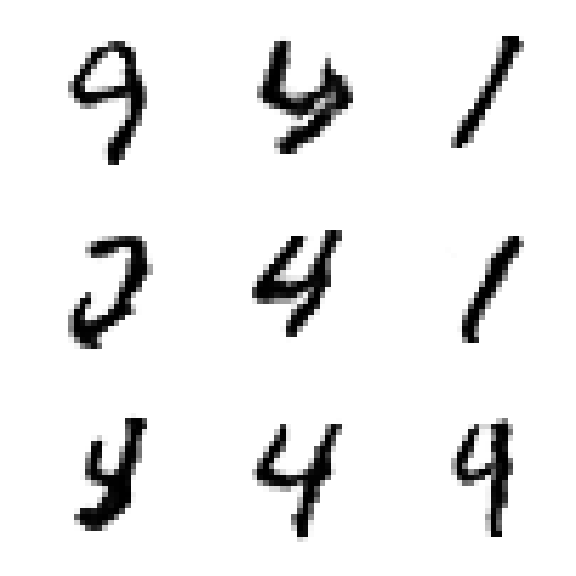 9 4 1
2 4 1
4 9